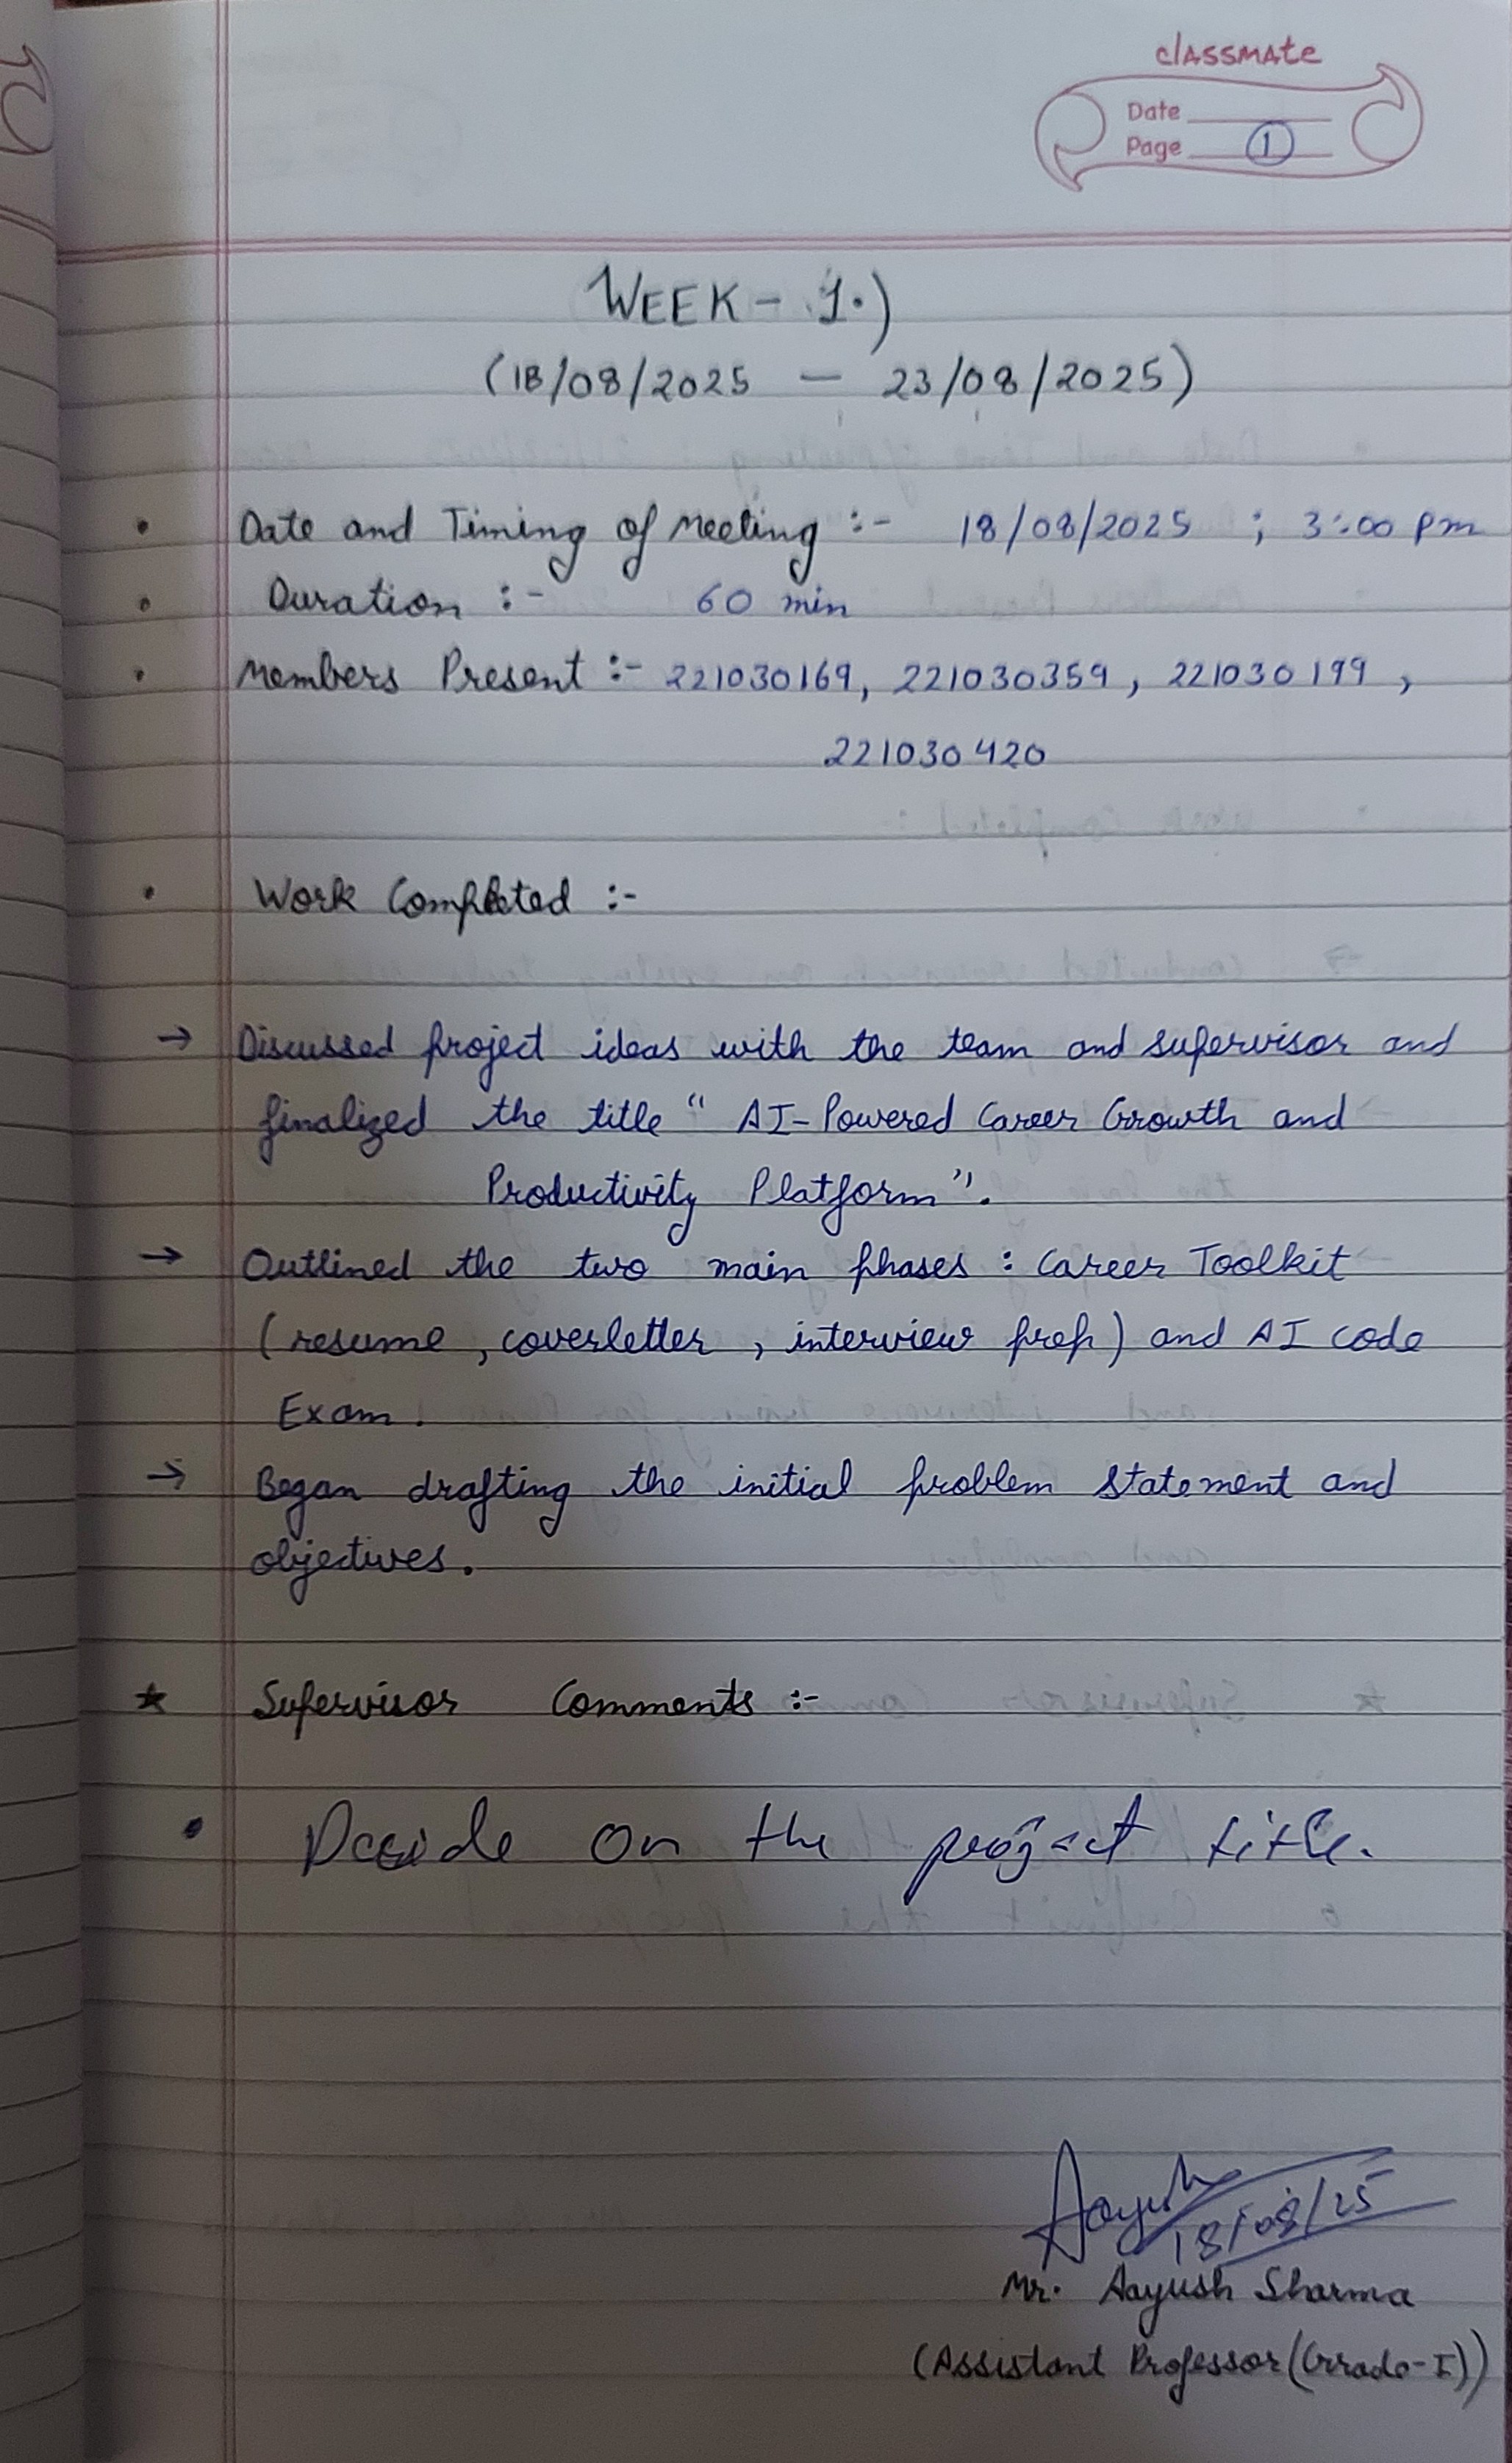 classmate
Date
Page 1
WEEK - 1.)
(18/08/2025 — 23/08/2025)
• Date and Timing of Meeting :- 18/08/2025 ; 3:00 pm
• Duration :- 60 min
• Members Present :- 221030169, 221030359, 221030199,
221030420
• Work Completed :-
→ Discussed project ideas with the team and supervisor and
finalized the title " AI-Powered Career Growth and
Productivity Platform".
→ Outlined the two main phases : Career Toolkit
(resume, coverletter, interview prep) and AI code
Exam.
→ Began drafting the initial problem statement and
objectives.
★ Supervisor Comments :-
• Decide on the project title.
Aayush
18/08/25
Mr. Aayush Sharma
(Assistant Professor (Grade-I))